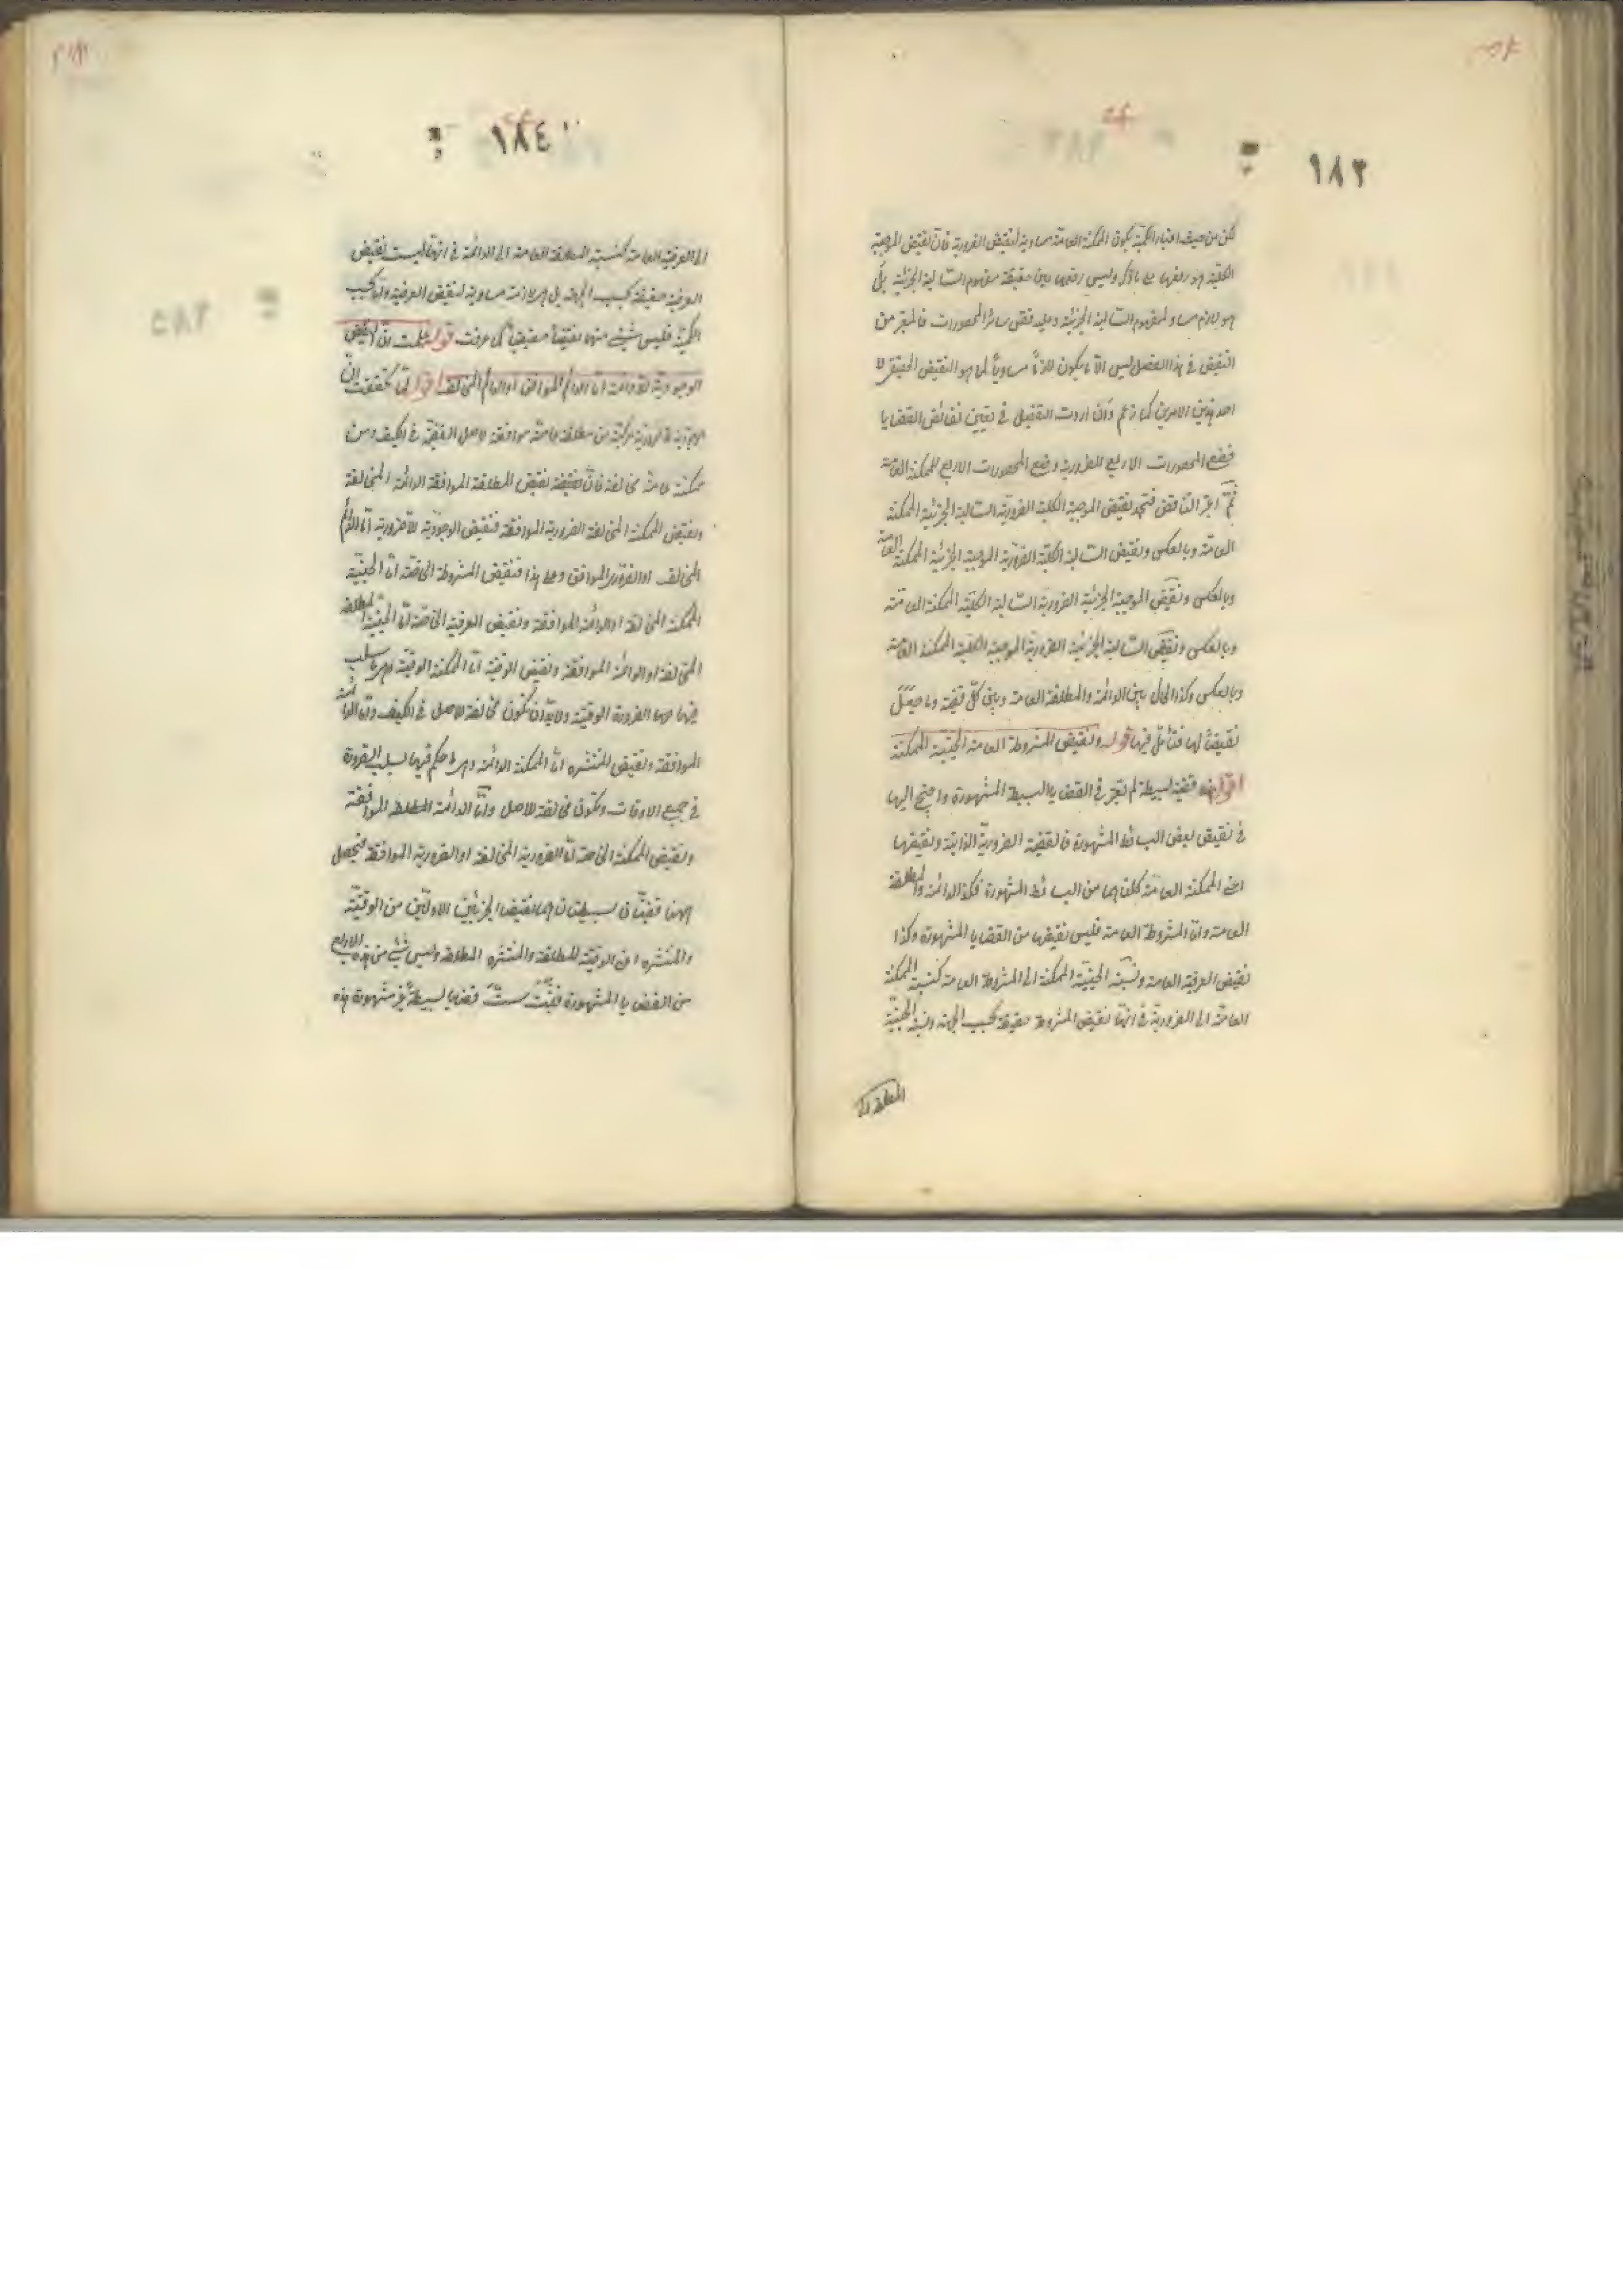 ١٨٣
لكن من حيث اعتبار الكمية يكون الممكنة العامة مساوية لنقيض الضرورية فان نقيض الموجبة
الكلية هو رفعها على ما ذكر وليس رفعها عين حقيقة مفهوم السالبة الجزئية بل
هو لازم مساو لمفهوم السالبة الجزئية وعليه فقس سائر المحصورات فالمعتبر من
النقيض في هذا الفصل ليس الا ما يكون لازما مساويا لما هو النقيض الحقيقي لا
احد هذين الامرين كما زعم وان اردت التفصيل في تعيين نقائض القضايا
فضع المحصورات الاربع للضرورية وضع المحصورات الاربع للممكنة العامة
ثم اجر التناقض فتجد نقيض الموجبة الكلية الضرورية السالبة الجزئية الممكنة
العامة وبالعكس ونقيض السالبة الكلية الضرورية الموجبة الجزئية الممكنة العامة
وبالعكس ونقيض الموجبة الجزئية الضرورية السالبة الكلية الممكنة العامة
وبالعكس ونقيض السالبة الجزئية الضرورية الموجبة الكلية الممكنة العامة
وبالعكس وكذا الحال بين الدائمة والمطلقة العامة وبين كل قضية وما جعل
نقيضا لها فتأمل فيها قوله ونقيض المشروطة العامة الحينية الممكنة
اقول هذه قضية بسيطة لم تعتبر في القضايا البسيطة المشهورة واحتيج اليها
في نقيض بعض البسائط المشهورة فالقضية الضرورية الذاتية ونقيضها
اعني الممكنة العامة كلتاهما من البسائط المشهورة فكذا الدائمة والمطلقة
العامة واما المشروطة العامة فليس نقيضها من القضايا المشهورة وكذا
نقيض العرفية العامة ونسبة الحينية الممكنة الى المشروطة العامة كنسبة الممكنة
العامة الى الضرورية في انها نقيض المشروطة حقيقة بحسب الجهة ونسبة الحينية
المطلقة
١٨٤
الى العرفية العامة كنسبة المطلقة العامة الى الدائمة في انها ليست نقيض
العرفية حقيقة بحسب الجهة بل هي لازمة مساوية لنقيض العرفية واما بحسب
الكمية فليس شيء منها نقيضا حقيقيا كما عرفت قوله علمت ان نقيض
الوجودية اللادائمة اما الدائم الموافق او الدائم المخالف اقول لما تحققت ان
الوجودية اللاضرورية مركبة من مطلقة عامة موافقة لاصل القضية في الكيف ومن
ممكنة عامة مخالفة فان نقيض المطلقة الموافقة الدائمة المخالفة
ونقيض الممكنة المخالفة الضرورية الموافقة فنقيض الوجودية اللاضرورية اما الدائم
المخالف او الضروري الموافق وعلى هذا فنقيض المشروطة الخاصة اما الحينية
الممكنة المخالفة او الدائمة الموافقة ونقيض العرفية الخاصة اما الحينية المطلقة
المخالفة او الدائمة الموافقة ونقيض الوقتية اما الممكنة الوقتية اي ما سلب
فيها الضرورة الوقتية ولا بد ان تكون مخالفة للاصل في الكيف واما الدائمة
الموافقة ونقيض المنتشرة اما الممكنة الدائمة وهي ما حكم فيها بسلب الضرورة
في جميع الاوقات وتكون مخالفة للاصل واما الدائمة المطلقة الموافقة
ونقيض الممكنة الخاصة اما الضرورية المخالفة او الضرورية الموافقة فتحصل
ههنا قضيتان بسيطتان هما نقيض الجزئين الاولين من الوقتية
والمنتشرة اعني الوقتية المطلقة والمنتشرة المطلقة وليس شيء من هذه الاربع
من القضايا المشهورة فثبت ست قضايا بسيطة غير مشهورة هذه